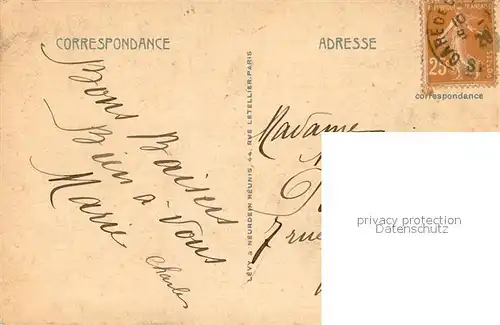 CORRESPONDANCE
ADRESSE
Bons Baisers
Bien à vous
Marie
Charles
LÉVY & NEURDEIN RÉUNIS, 44, RUE LETELLIER, PARIS
25
GARE DE
correspondance
Madame
7 rue
privacy protection
Datenschutz